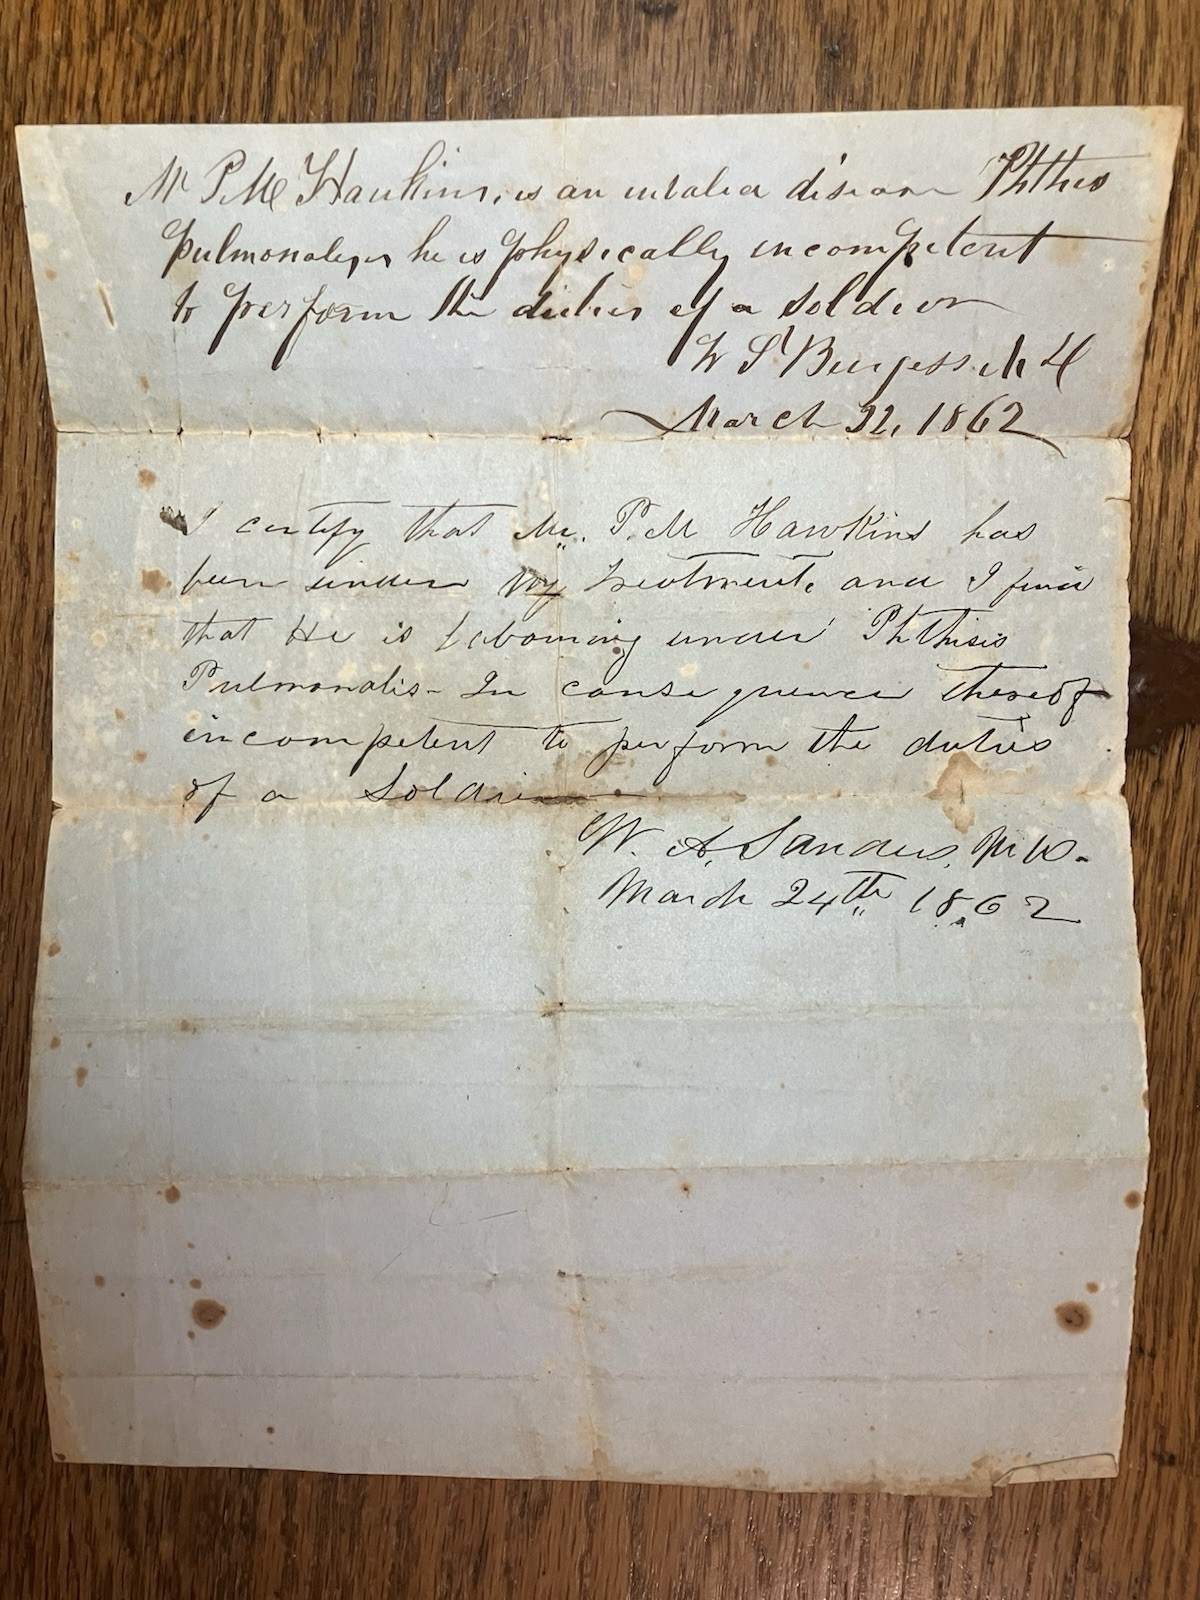 Mr P. M. Hawkins, is an invalid disease Phthis
Pulmonalis, he is physically incompetent
to perform the duties of a Soldier
W S Burgess M D
March 22, 1862
I certify that Mr. P. M Hawkins has
been under my treatment, and I find
that He is laboring under Phthisis
Pulmonalis - In consequence thereof
incompetent to perform the duties
of a Soldier
W. A. Sanders, M D.
March 24th 1862